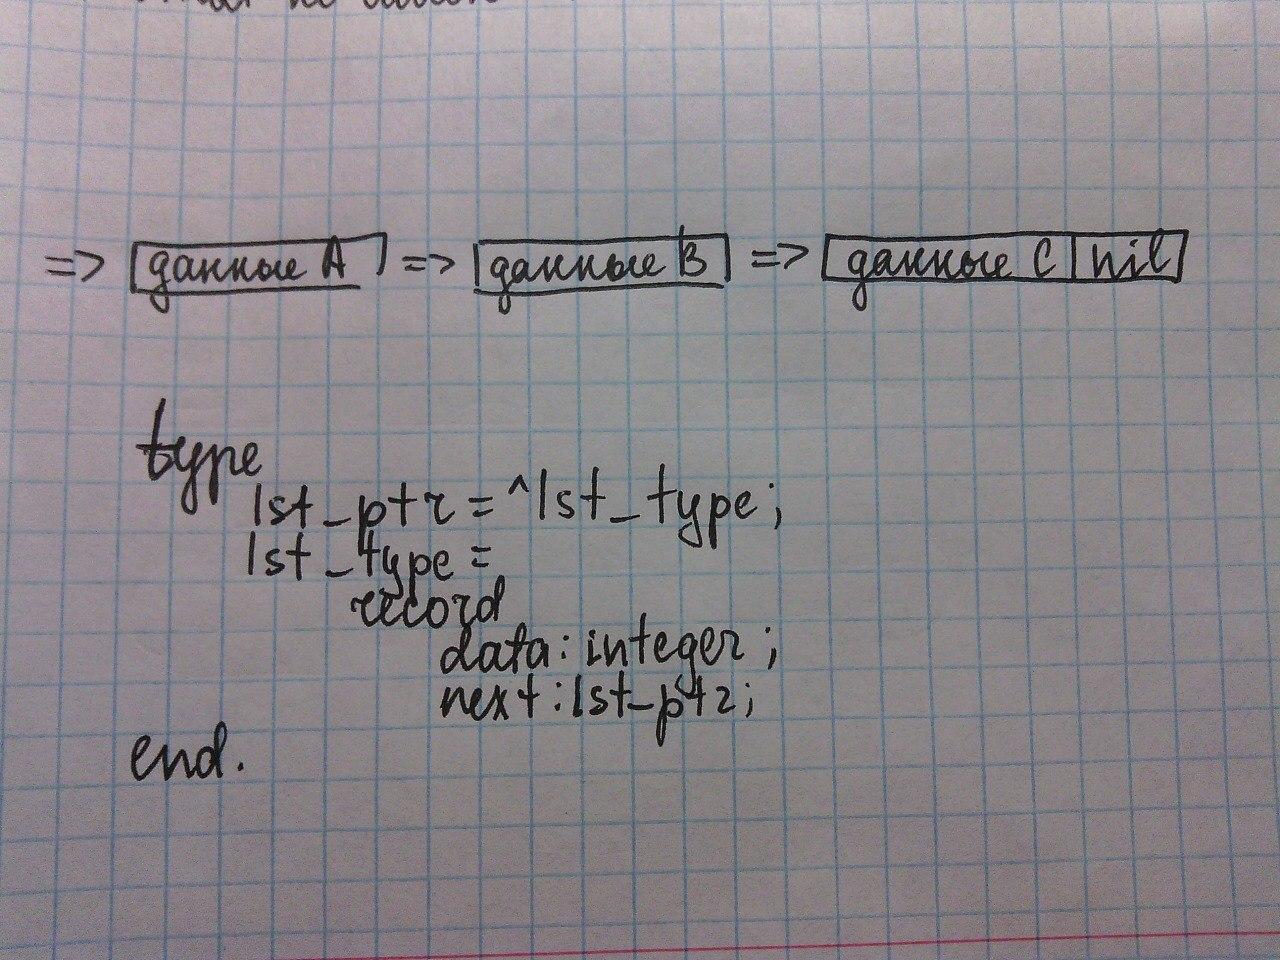 => данные A => данные B => данные C nil
type
lst_ptr = ^lst_type;
lst_type =
record
data: integer;
next: lst_ptr;
end.